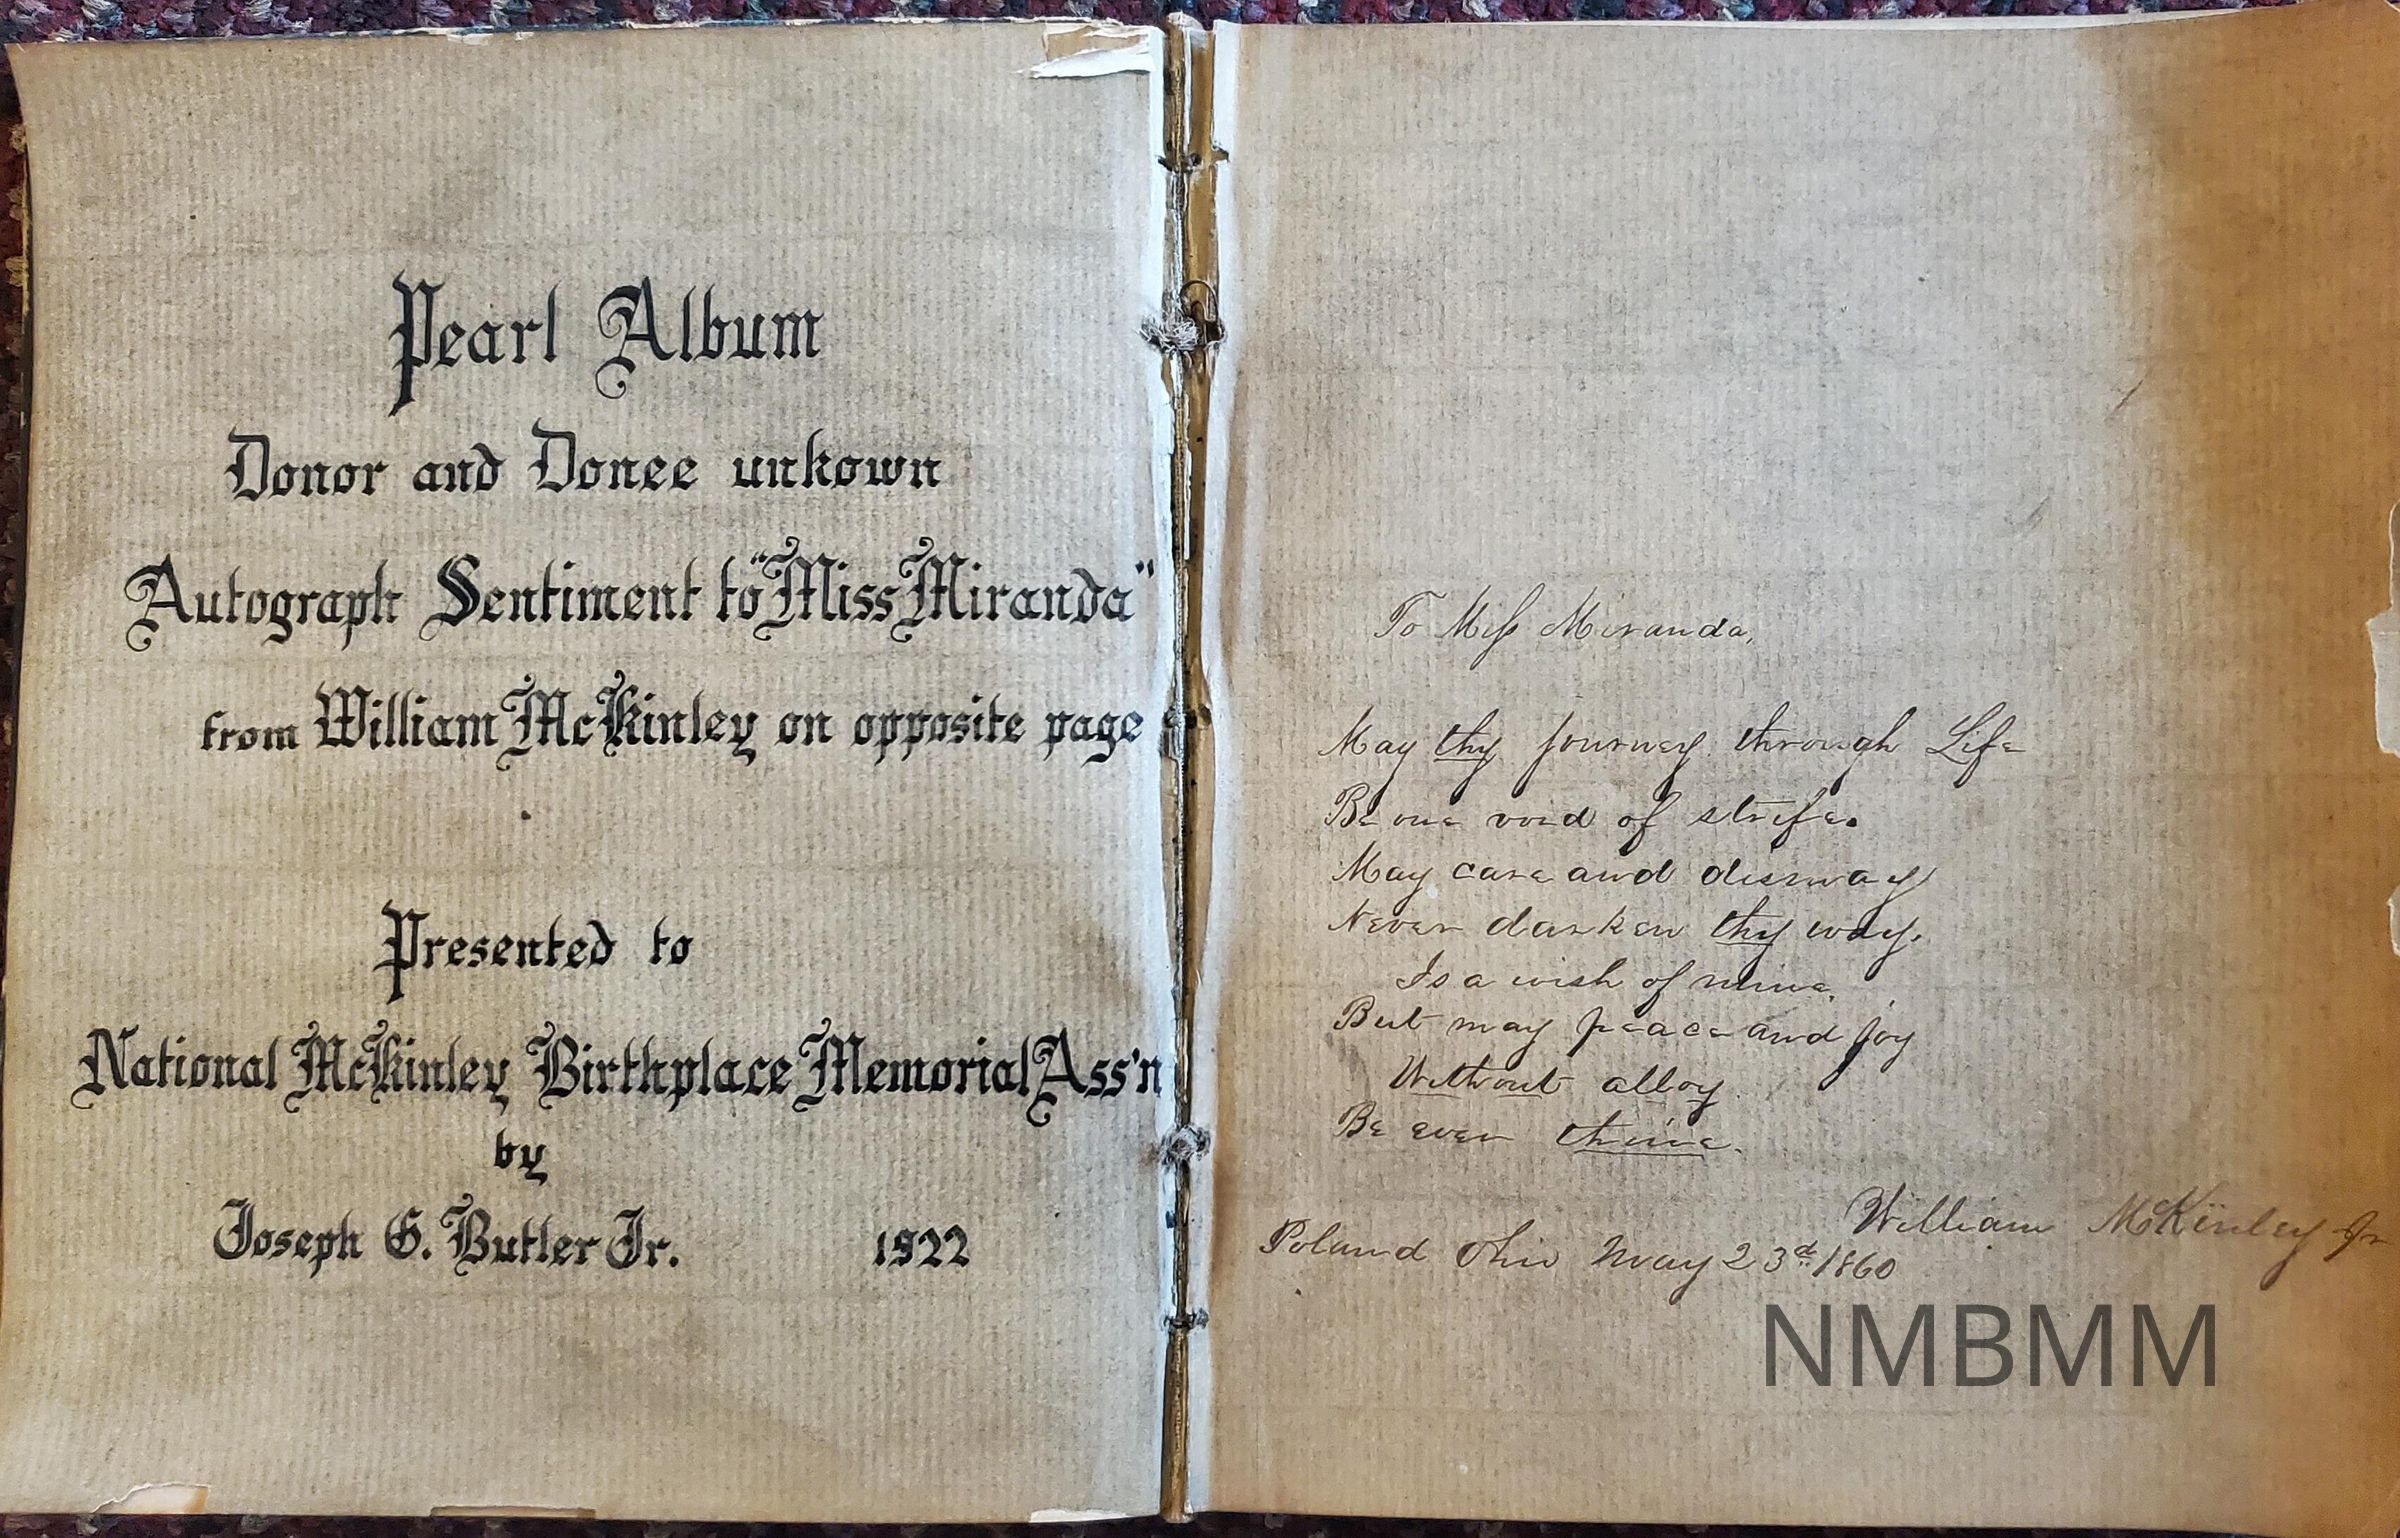 Pearl Album
Donor and Donee unkown
Autograph Sentiment to "Miss Miranda"
from William McKinley on opposite page
Presented to
National McKinley Birthplace Memorial Ass'n
by
Joseph G. Butler Jr. 1922
To Miſs Miranda,
May thy journey through Life
Be one void of strife.
May care and dismay
Never darken thy way.
Is a wish of mine.
But may peace and joy
Without alloy
Be ever thine.
William McKinley Jr
Poland Ohio May 23d. 1860
NMBMM